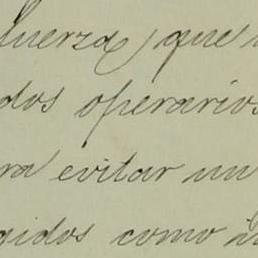 fuerza, que
dos operarios
ra evitar un
gidos como